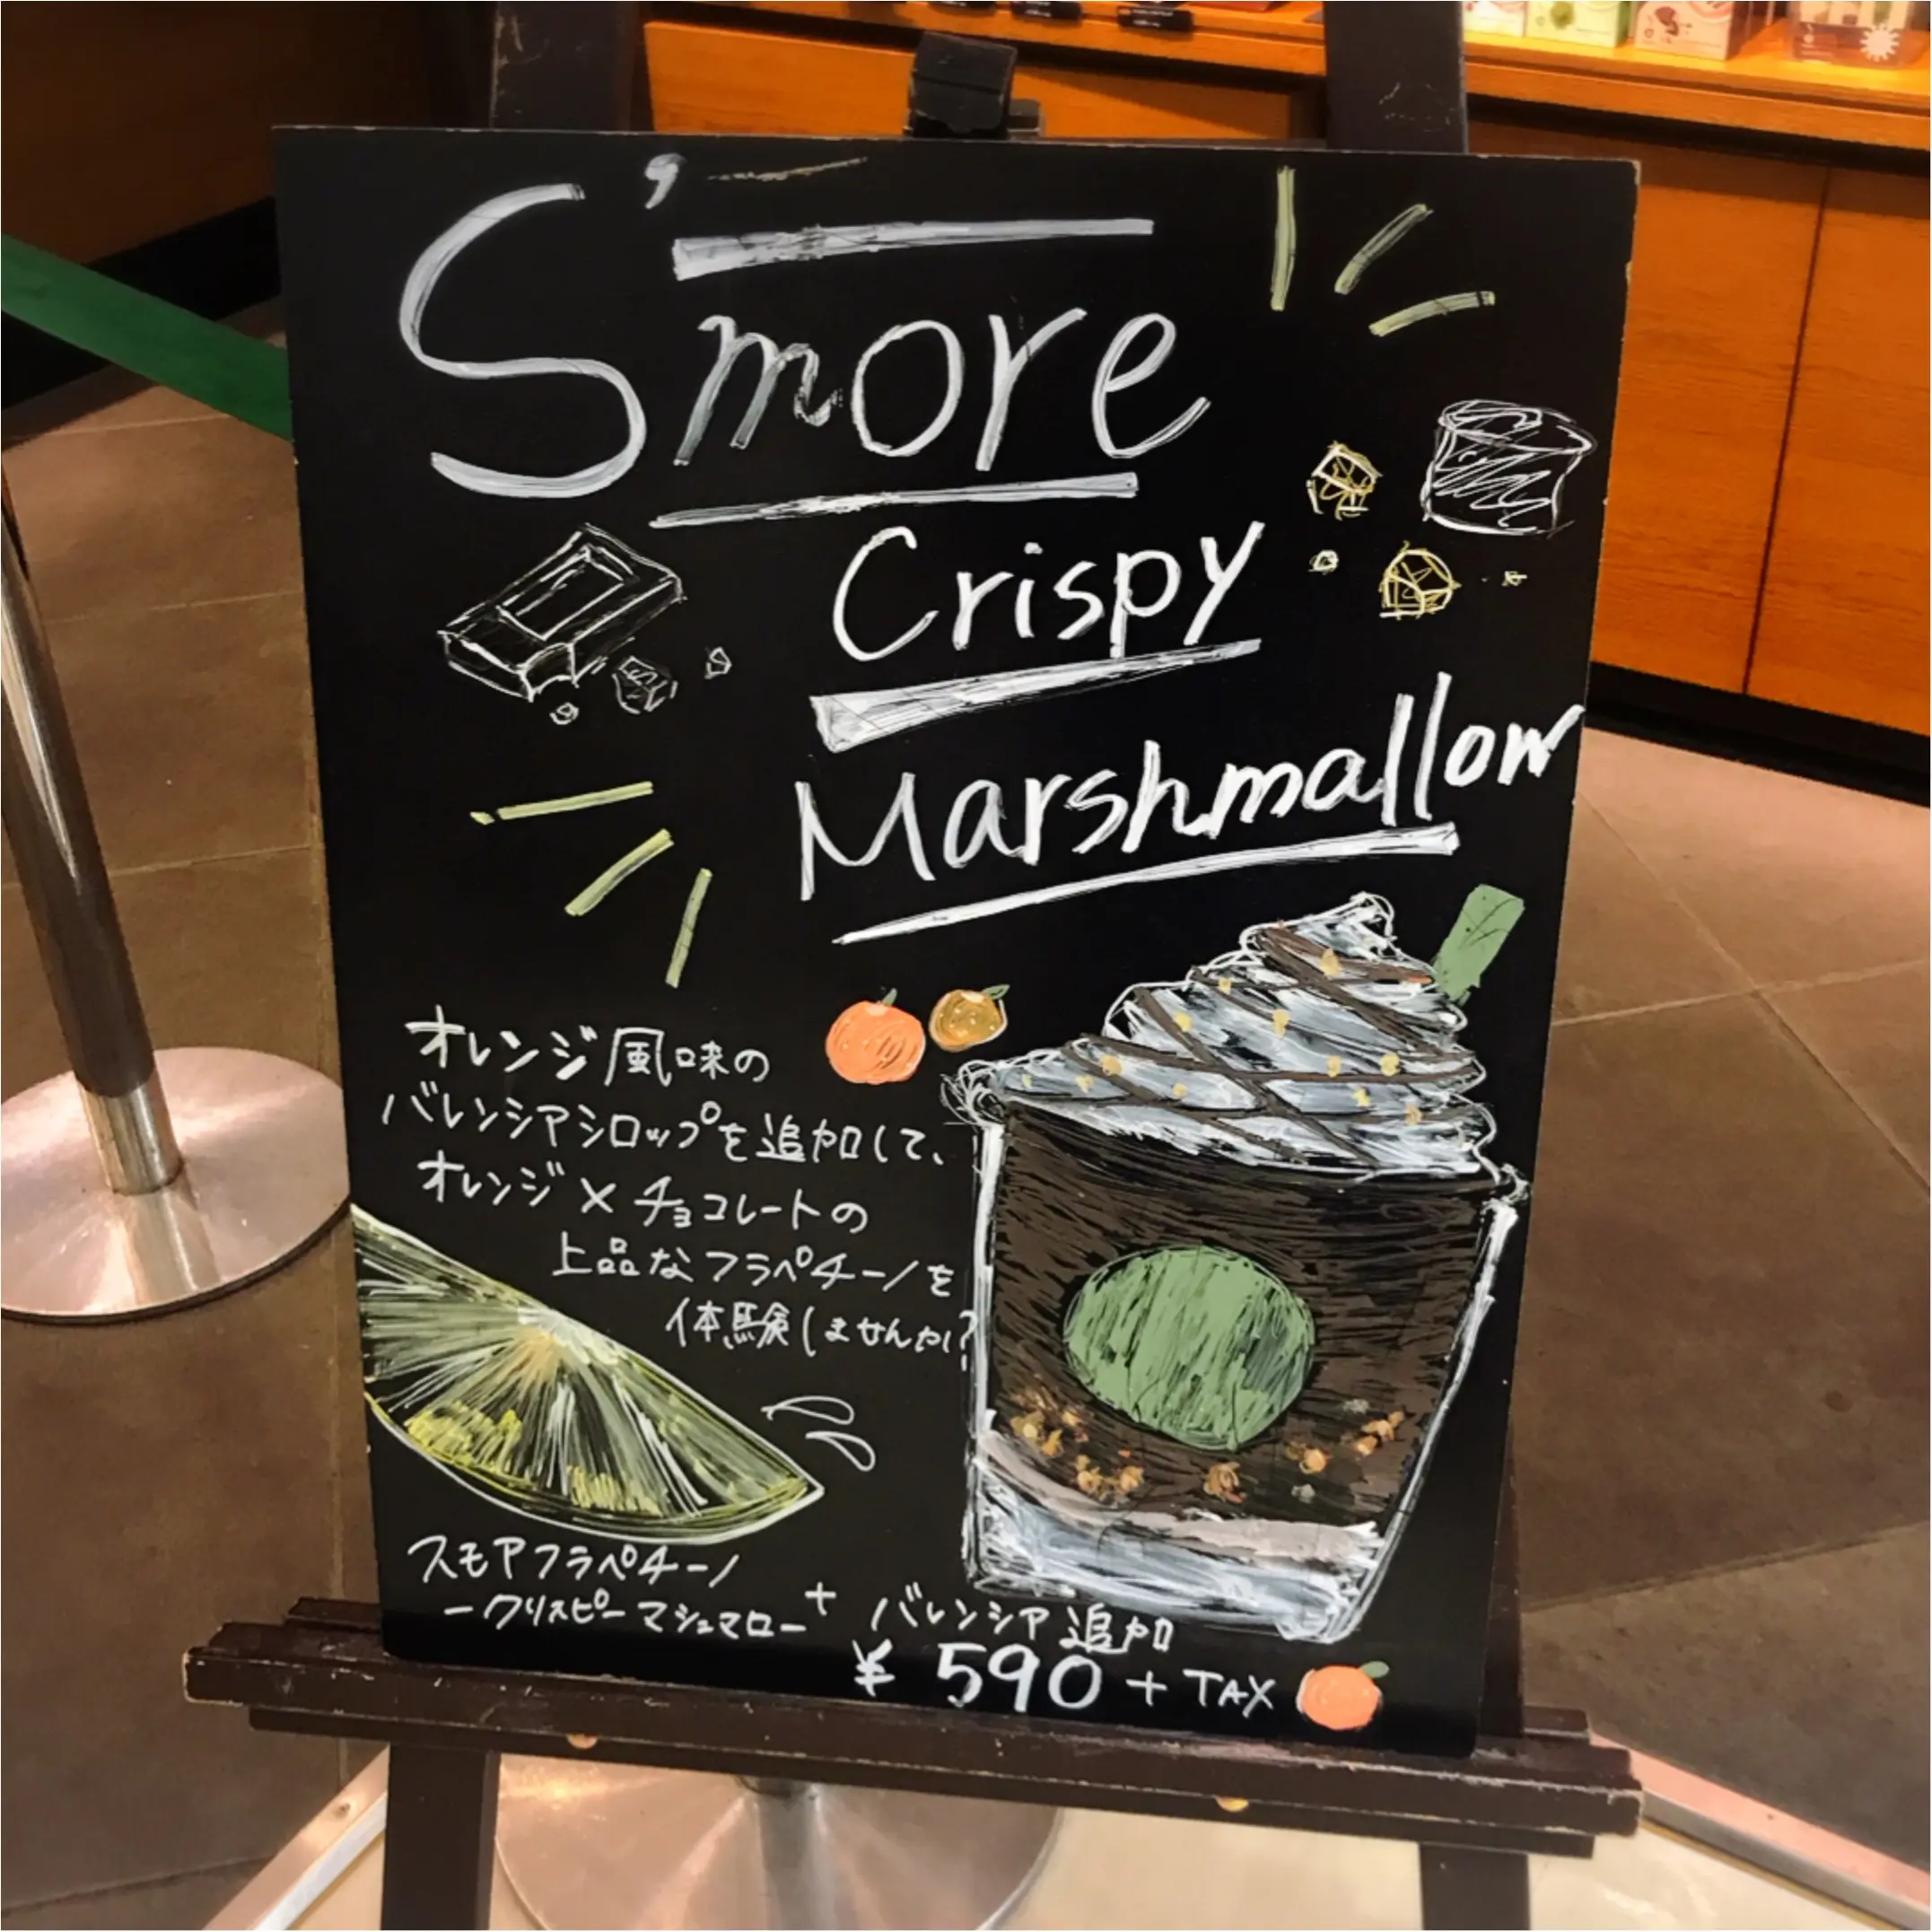 S'more
Crispy
Marshmallow
オレンジ風味の
バレンシアシロップを追加して、
オレンジ×チョコレートの
上品なフラペチーノを
体験しませんか?
スモアフラペチーノ
ークリスピーマシュマローー + バレンシア追加
¥590+TAX